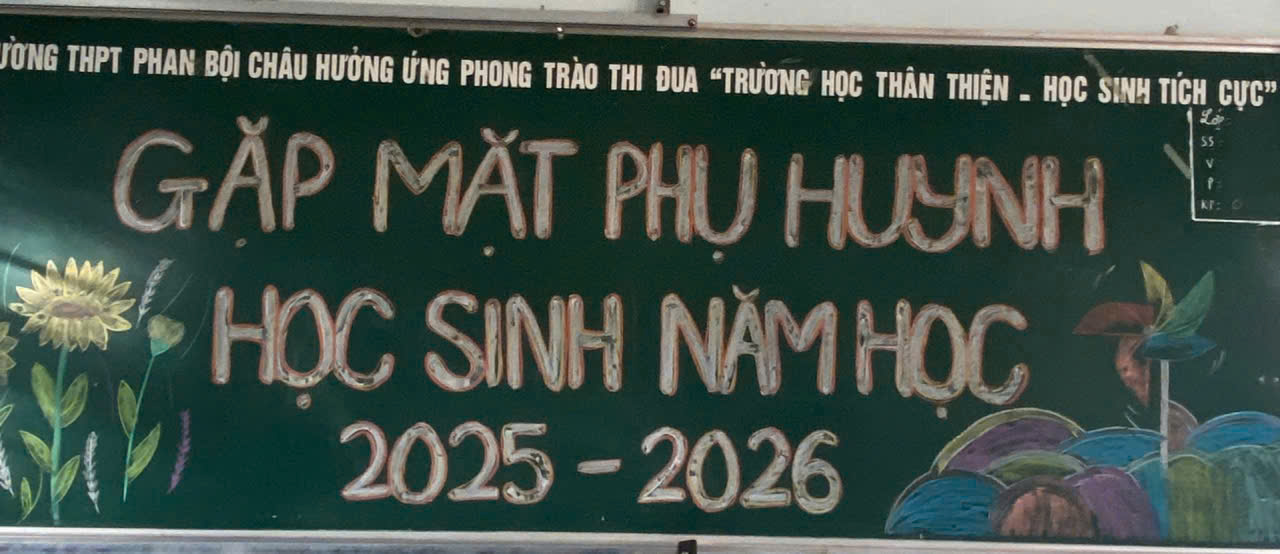 ƯỜNG THPT PHAN BỘI CHÂU HƯỞNG ỨNG PHONG TRÀO THI ĐUA “TRƯỜNG HỌC THÂN THIỆN - HỌC SINH TÍCH CỰC”
Lớp
SS :
V :
P :
KP : 0
GẶP MẶT PHỤ HUYNH
HỌC SINH NĂM HỌC
2025 - 2026